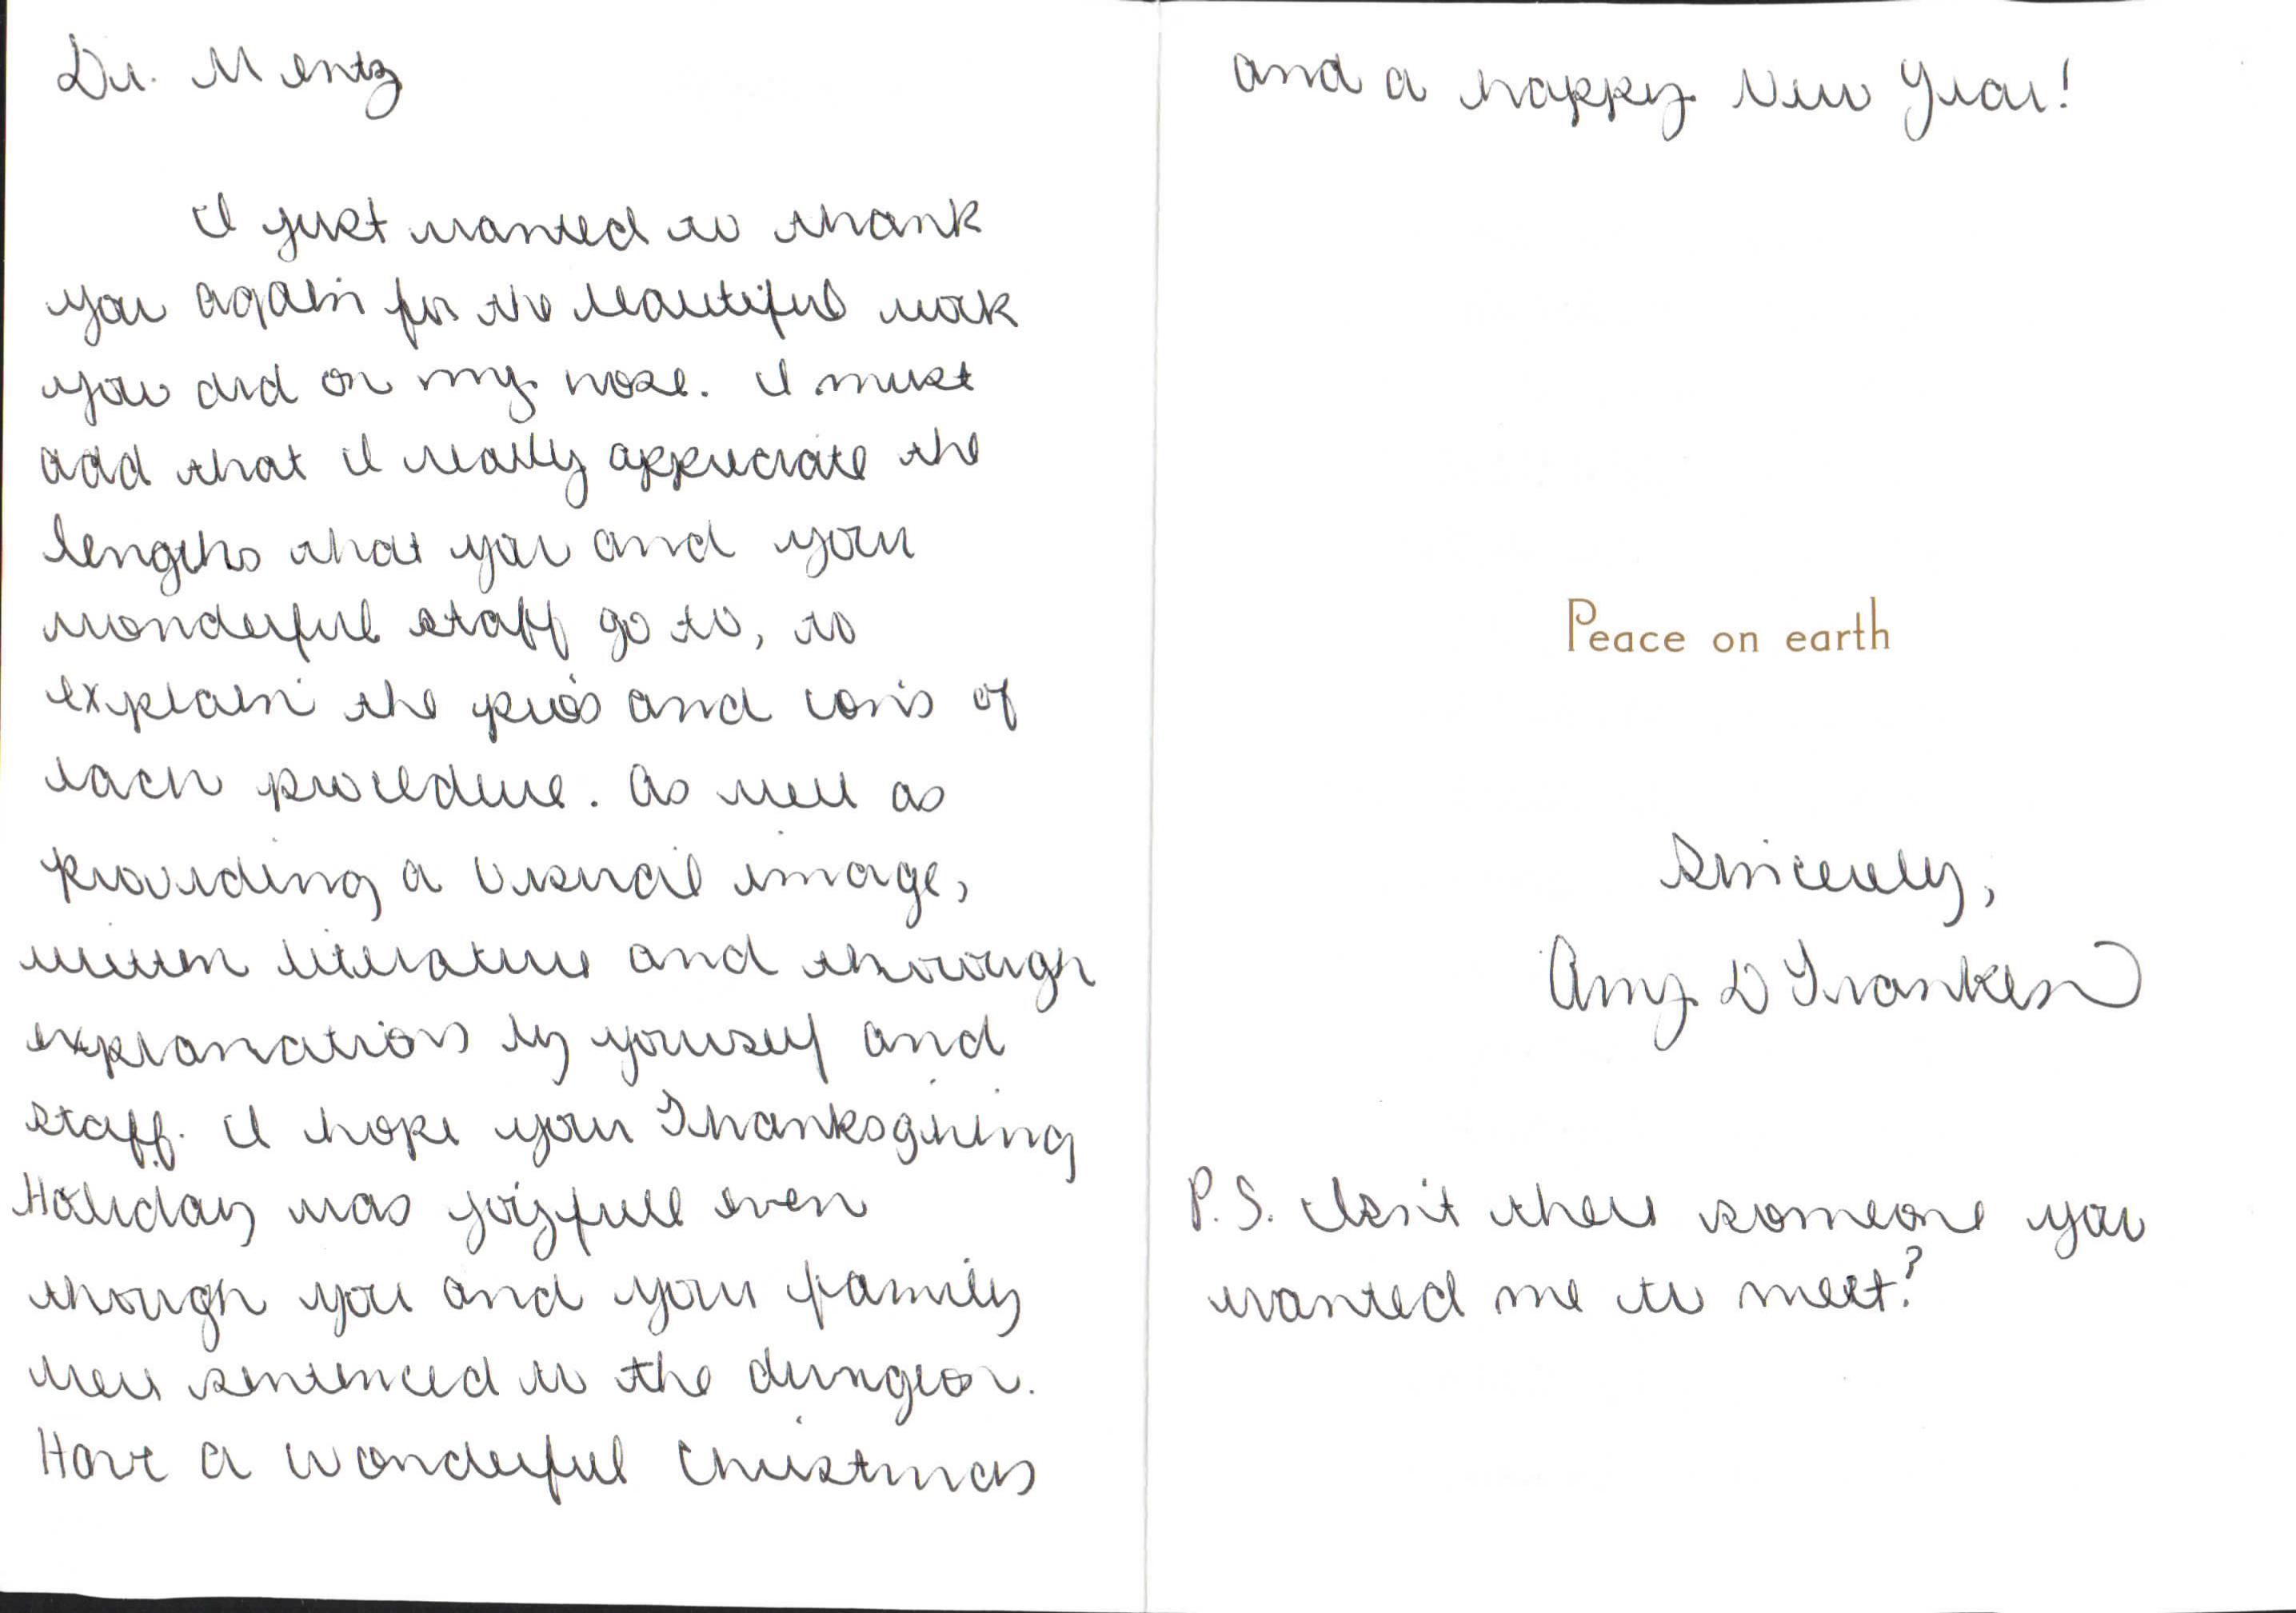 Dr. Mentz
I just wanted to thank
you again for the beautiful work
you did on my nose. I must
add that I really appreciate the
lengths that you and your
wonderful staff go to, to
explain the pro's and con's of
each procedure. As well as
providing a visual image,
written literature and thorough
explanations by yourself and
staff. I hope your Thanksgiving
Holiday was joyfull even
though you and your family
were sentenced to the dungeon.
Have a wonderful Christmas
and a happy New Year!
Peace on earth
Sincerely,
Amy D Franken
P.S. Isn't there someone you
wanted me to meet?